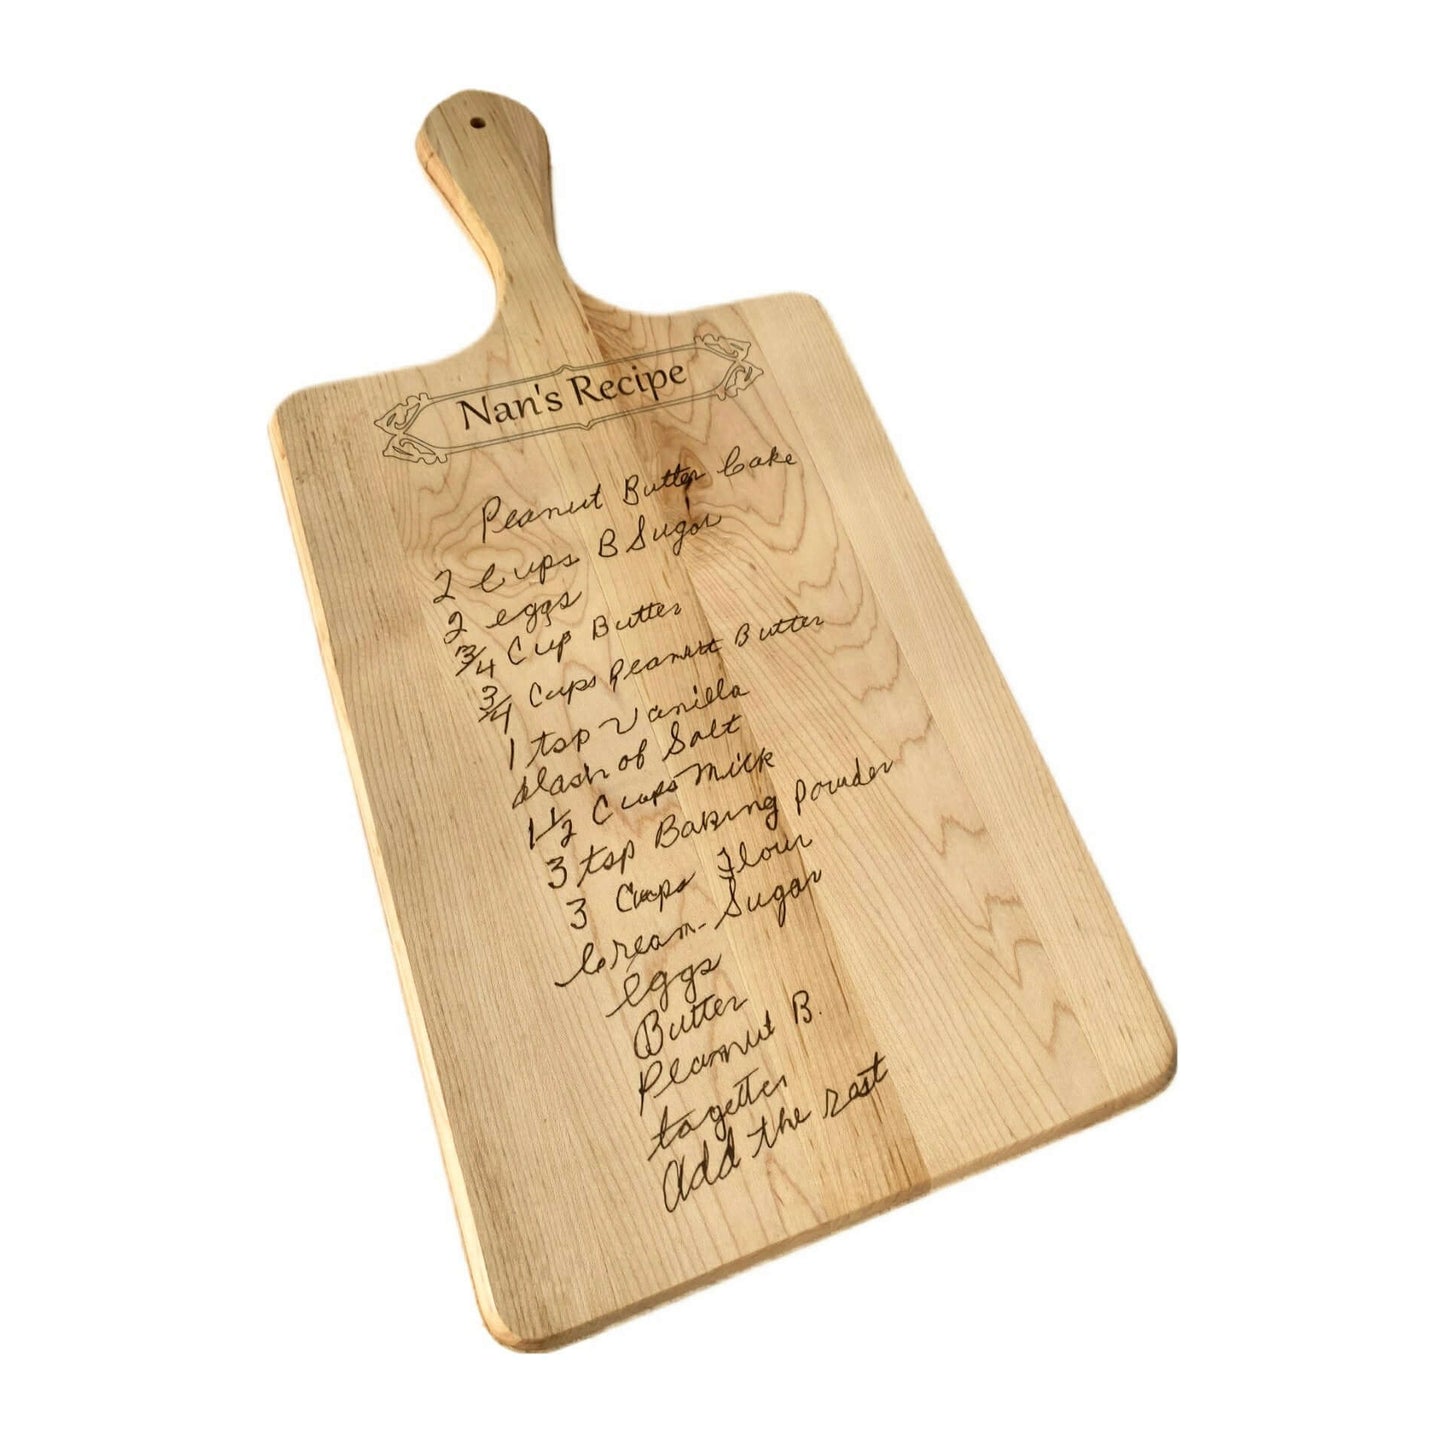 Nan's Recipe
Peanut Butter Cake
2 Cups B Sugar
2 eggs
3/4 Cup Butter
3/4 Cups Peanut Butter
1 tsp Vanilla
dash of Salt
1 1/2 Cups Milk
3 tsp Baking Powder
3 Cups Flour
Cream - Sugar
eggs
Butter
Peanut B.
together
Add the rest